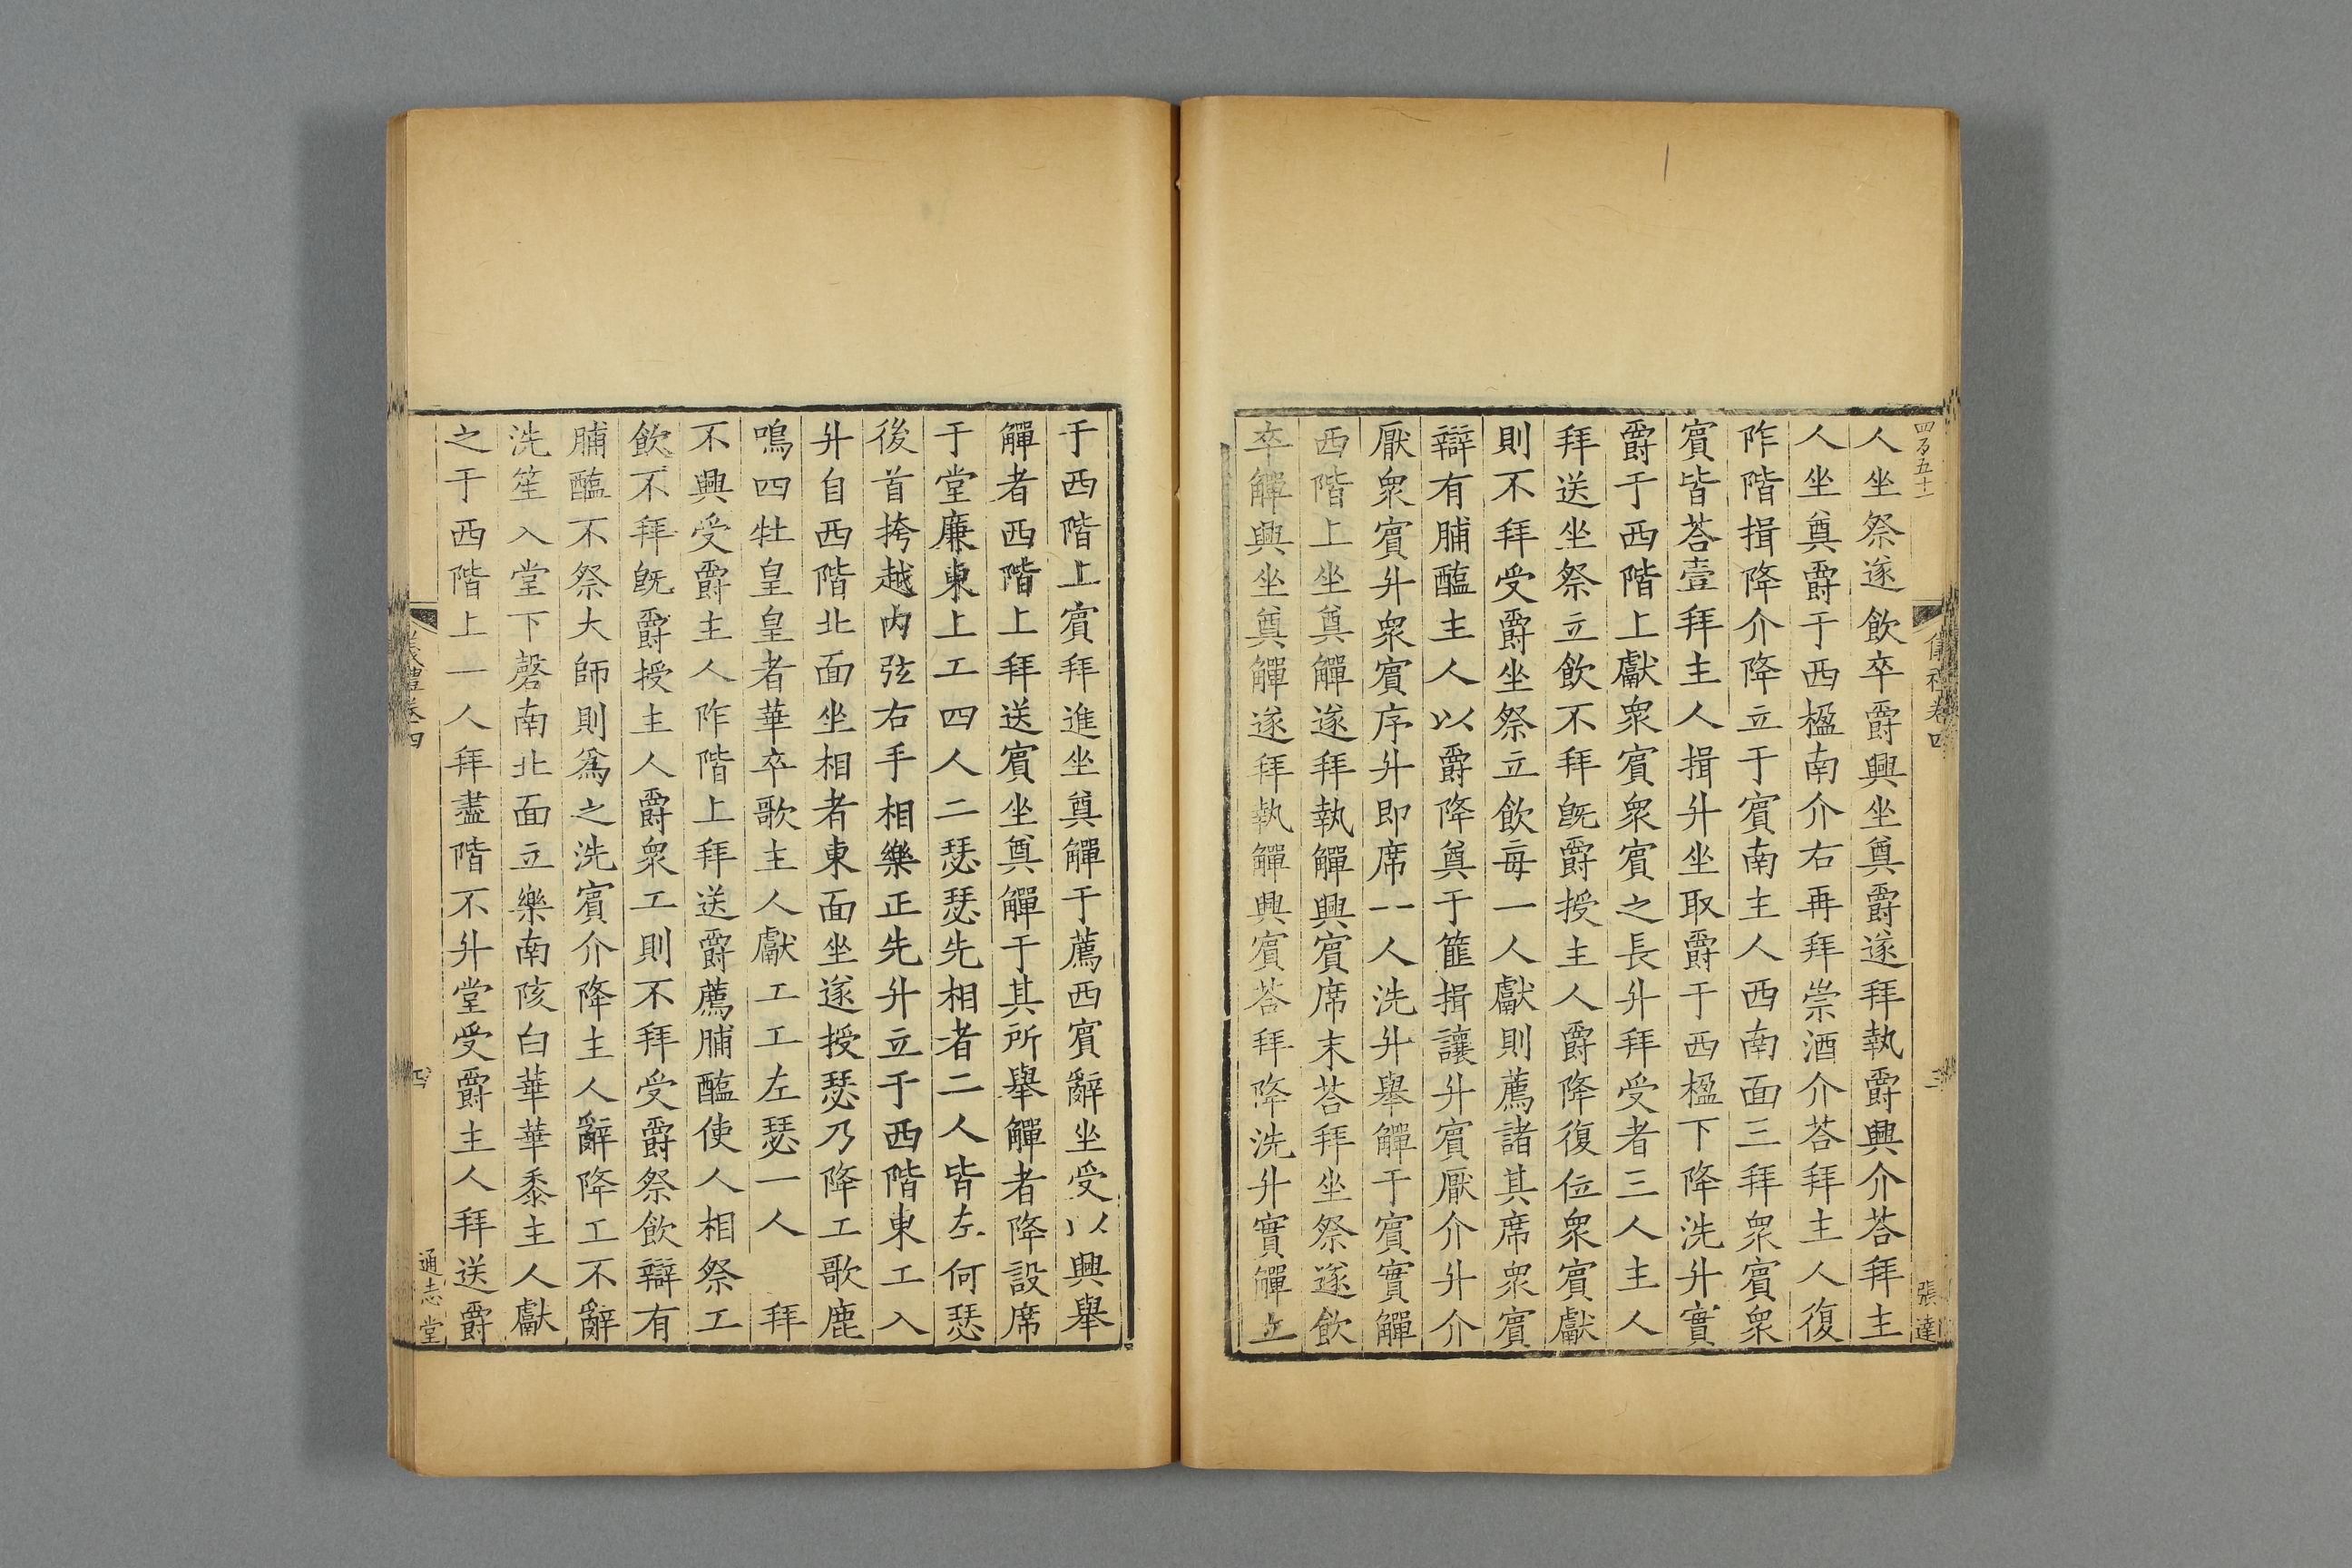 四百五十一
儀禮卷四
三
張達
人坐祭遂飲卒爵興坐奠爵遂拜執爵興介荅拜主
人坐奠爵于西楹南介右再拜崇酒介荅拜主人復
阼階揖降介降立于賔南主人西南面三拜衆賔衆
賔皆荅壹拜主人揖升坐取爵于西楹下降洗升實
爵于西階上獻衆賔衆賔之長升拜受者三人主人
拜送坐祭立飲不拜旣爵授主人爵降復位衆賔獻
則不拜受爵坐祭立飲每一人獻則薦諸其席衆賔
辯有脯醢主人以爵降奠于篚揖讓升賔厭介升介
厭衆賔升衆賔序升即席一人洗升舉觶于賔實觶
西階上坐奠觶遂拜執觶興賔席末荅拜坐祭遂飲
卒觶興坐奠觶遂拜執觶興賔荅拜降洗升實觶立
于西階上賔拜進坐奠觶于薦西賔辭坐受以興舉
觶者西階上拜送賔坐奠觶于其所舉觶者降設席
于堂廉東上工四人二瑟瑟先相者二人皆左何瑟
後首挎越内弦右手相樂正先升立于西階東工入
升自西階北面坐相者東面坐遂授瑟乃降工歌鹿
鳴四牡皇皇者華卒歌主人獻工工左瑟一人 拜
不興受爵主人阼階上拜送爵薦脯醢使人相祭工
飲不拜旣爵授主人爵衆工則不拜受爵祭飲辯有
脯醢不祭大師則爲之洗賔介降主人辭降工不辭
洗笙入堂下磬南北面立樂南陔白華華黍主人獻
之于西階上一人拜盡階不升堂受爵主人拜送爵
儀禮卷四
四
通志堂